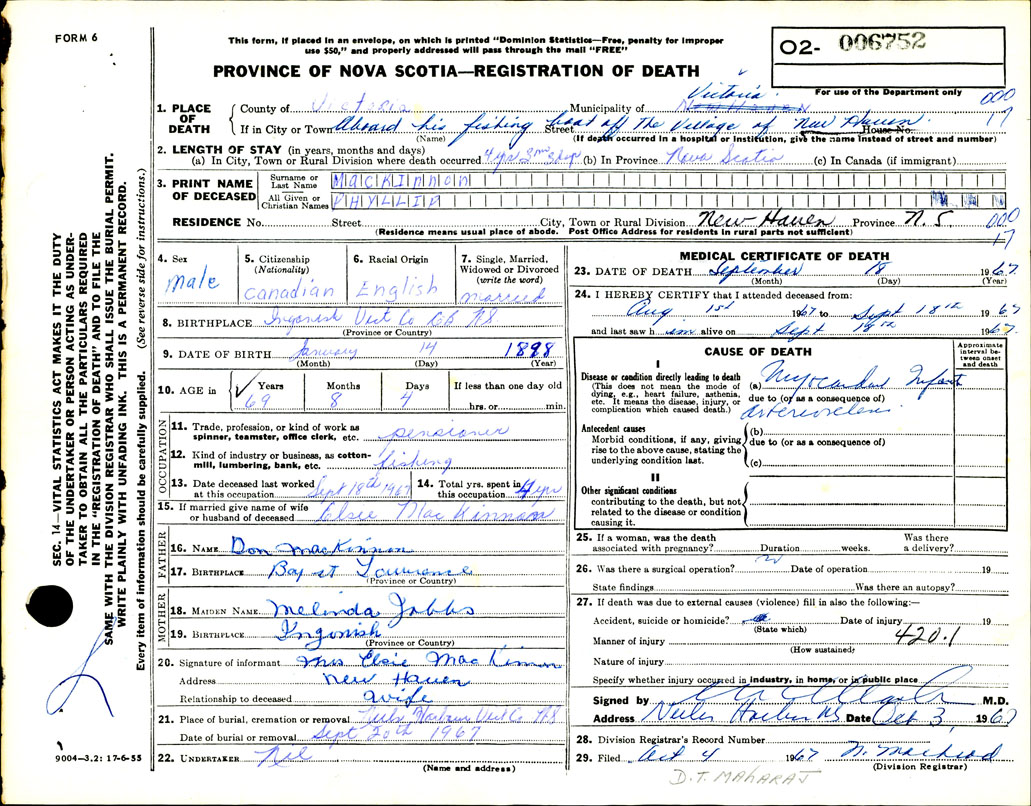 FORM 6
This form, if placed in an envelope, on which is printed "Dominion Statistics—Free, penalty for improper
use $50," and properly addressed will pass through the mail "FREE"
PROVINCE OF NOVA SCOTIA—REGISTRATION OF DEATH
02- 006752
For use of the Department only
000
17
1. PLACE OF DEATH
County of Victoria Municipality of Victoria New Haven
If in City or Town Aboard his fishing Street boat off the Village of New Haven. House No.
(Name) (If death occurred in a hospital or institution, give the name instead of street and number)
2. LENGTH OF STAY (in years, months and days)
(a) In City, Town or Rural Division where death occurred 4 yrs (b) In Province Nova Scotia (c) In Canada (if immigrant)
3. PRINT NAME OF DECEASED
Surname or Last Name MacKinnon
All Given or Christian Names PHYLLIP
RESIDENCE No. Street City, Town or Rural Division New Haven Province N.S 000
17
(Residence means usual place of abode. Post Office Address for residents in rural parts not sufficient)
4. Sex
Male
5. Citizenship
(Nationality)
Canadian
6. Racial Origin
English
7. Single, Married,
Widowed or Divorced
(write the word)
married
8. BIRTHPLACE Ingonish Vict Co CB NS
(Province or Country)
9. DATE OF BIRTH January 14 1898
(Month) (Day) (Year)
10. AGE in
Years Months Days If less than one day old
69 8 4 hrs. or min.
OCCUPATION
11. Trade, profession, or kind of work as
spinner, teamster, office clerk, etc. pensioner
12. Kind of industry or business, as cotton-
mill, lumbering, bank, etc. fishing
13. Date deceased last worked
at this occupation Sept 18th 1967
14. Total yrs. spent in
this occupation yrs
15. If married give name of wife
or husband of deceased Elsie MacKinnon
FATHER
16. NAME Don MacKinnon
17. BIRTHPLACE Bay st Lawrence
(Province or Country)
MOTHER
18. MAIDEN NAME Melinda
19. BIRTHPLACE Ingonish
(Province or Country)
20. Signature of informant Mrs Elsie MacKinnon
Address New Haven
Relationship to deceased Wife
21. Place of burial, cremation or removal Neils Harbour Vict Co NS
Date of burial or removal Sept 20th 1967
22. UNDERTAKER Nil
(Name and address)
MEDICAL CERTIFICATE OF DEATH
23. DATE OF DEATH September 18 1967
(Month) (Day) (Year)
24. I HEREBY CERTIFY that I attended deceased from:
Aug 1st 1967 to Sept 18th 1967
and last saw him alive on Sept 1967.
CAUSE OF DEATH
Approximate
interval be-
tween onset
and death
I
Disease or condition directly leading to death
(This does not mean the mode of
dying, e.g., heart failure, asthenia,
etc. It means the disease, injury, or
complication which caused death.)
(a) Myocardial Infarct
due to (or as a consequence of)
arteriosclerosis
Antecedent causes
Morbid conditions, if any, giving
rise to the above cause, stating the
underlying condition last.
(b)
due to (or as a consequence of)
(c)
II
Other significant conditions
contributing to the death, but not
related to the disease or condition
causing it.
25. If a woman, was the death Was there
associated with pregnancy? Duration weeks. a delivery?
26. Was there a surgical operation? Date of operation 19
State findings Was there an autopsy?
27. If death was due to external causes (violence) fill in also the following:—
Accident, suicide or homicide? Date of injury 19
(State which)
Manner of injury 420.1
(How sustained)
Nature of injury
Specify whether injury occurred in industry, in home, or in public place
Signed by M.D.
Address Neils Harbor NS Date Oct 3, 1967
28. Division Registrar's Record Number
29. Filed Oct 4 1967 N. MacLeod
(Division Registrar)
D.T. MAHARAJ
SEC. 14—VITAL STATISTICS ACT MAKES IT THE DUTY
OF THE UNDERTAKER OR PERSON ACTING AS UNDER-
TAKER TO OBTAIN ALL THE PARTICULARS REQUIRED
IN THE "REGISTRATION OF DEATH" AND TO FILE THE
SAME WITH THE DIVISION REGISTRAR WHO SHALL ISSUE THE BURIAL PERMIT.
WRITE PLAINLY WITH UNFADING INK. THIS IS A PERMANENT RECORD.
Every item of information should be carefully supplied. (See reverse side for instructions.)
9004—3.2: 17-6-55